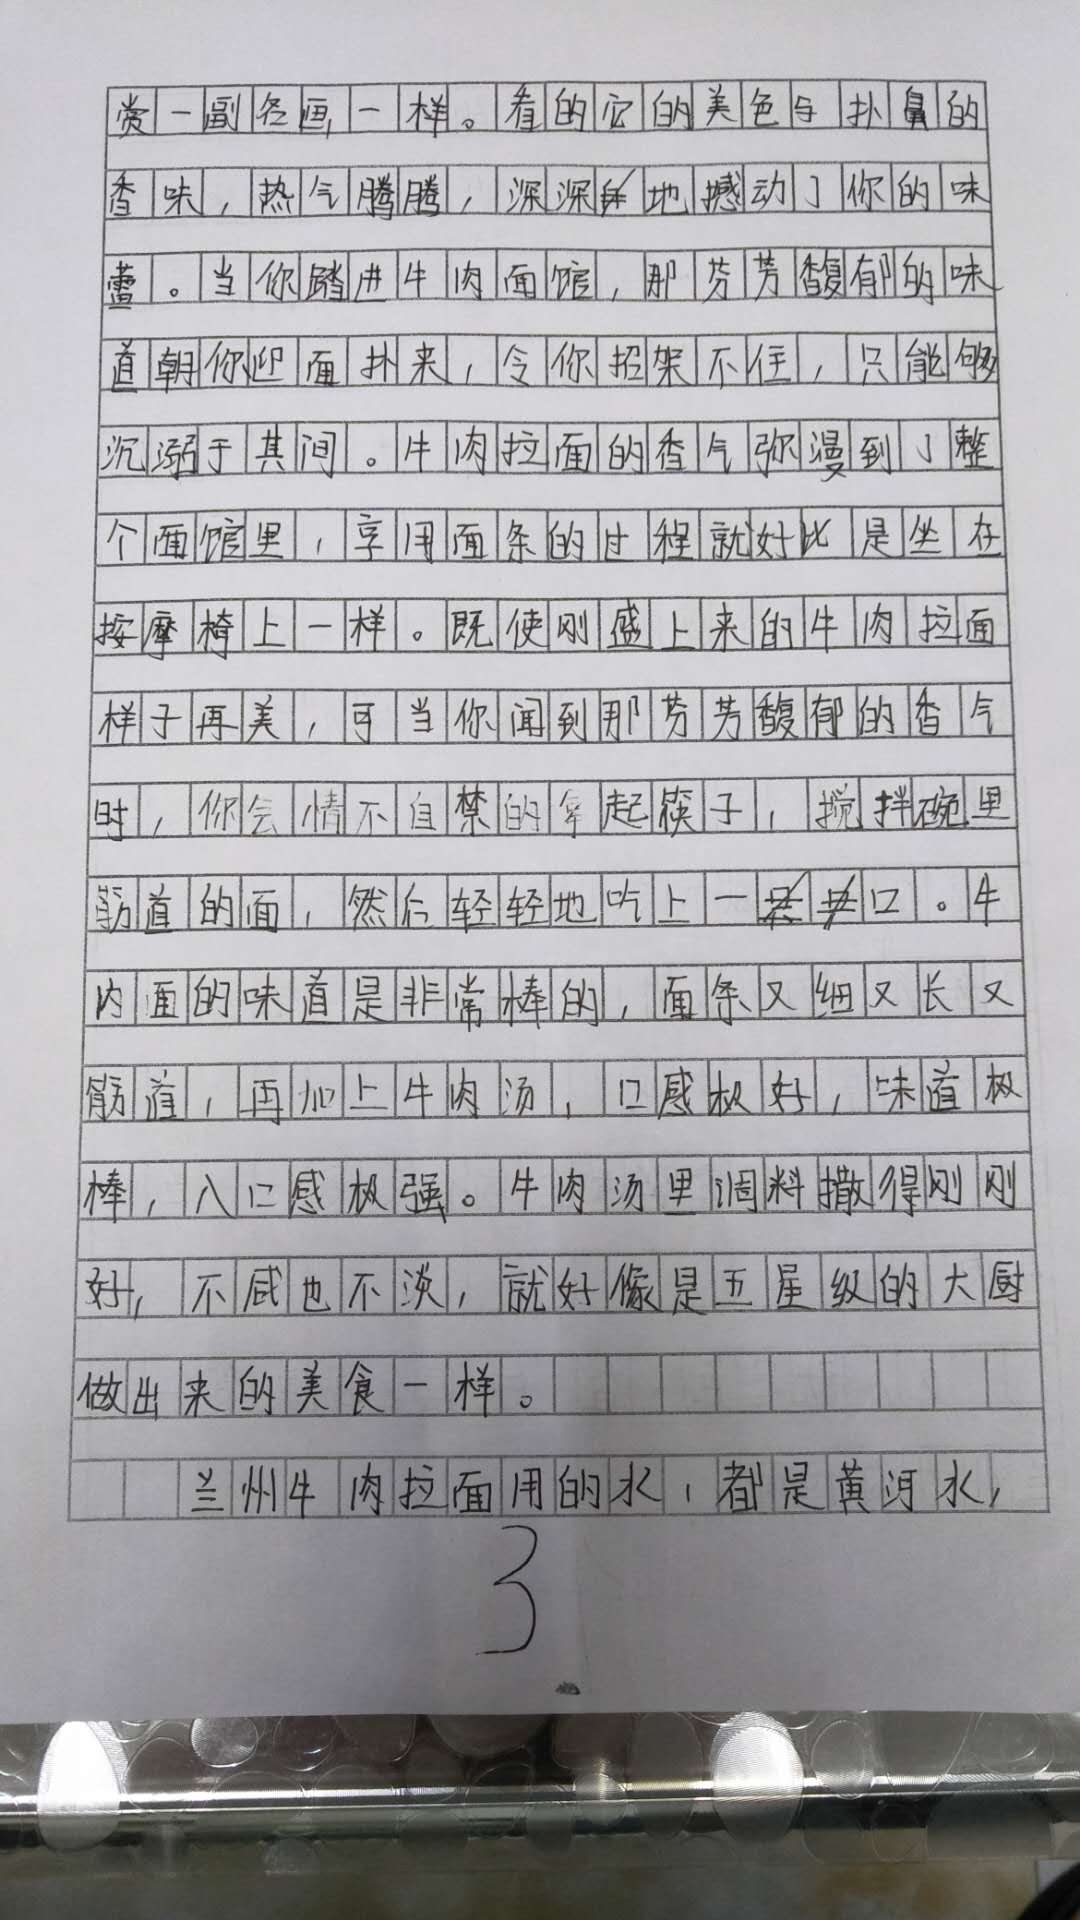 赏一副名画一样。看的它的美色与扑鼻的
香味,热气腾腾,深深地撼动了你的味
蕾。当你踏进牛肉面馆,那芬芳馥郁的味
道朝你迎面扑来,令你招架不住,只能够
沉溺于其间。牛肉拉面的香气弥漫到了整
个面馆里,享用面条的过程就好比是坐在
按摩椅上一样。既使刚盛上来的牛肉拉面
样子再美,可当你闻到那芬芳馥郁的香气
时,你会情不自禁的拿起筷子,搅拌碗里
筋道的面,然后轻轻地吃上一口。牛
肉面的味道是非常棒的,面条又细又长又
筋道,再加上牛肉汤,口感极好,味道极
棒,入口感极强。牛肉汤里调料撒得刚刚
好,不咸也不淡,就好像是五星级的大厨
做出来的美食一样。
兰州牛肉拉面用的水,都是黄河水,
3